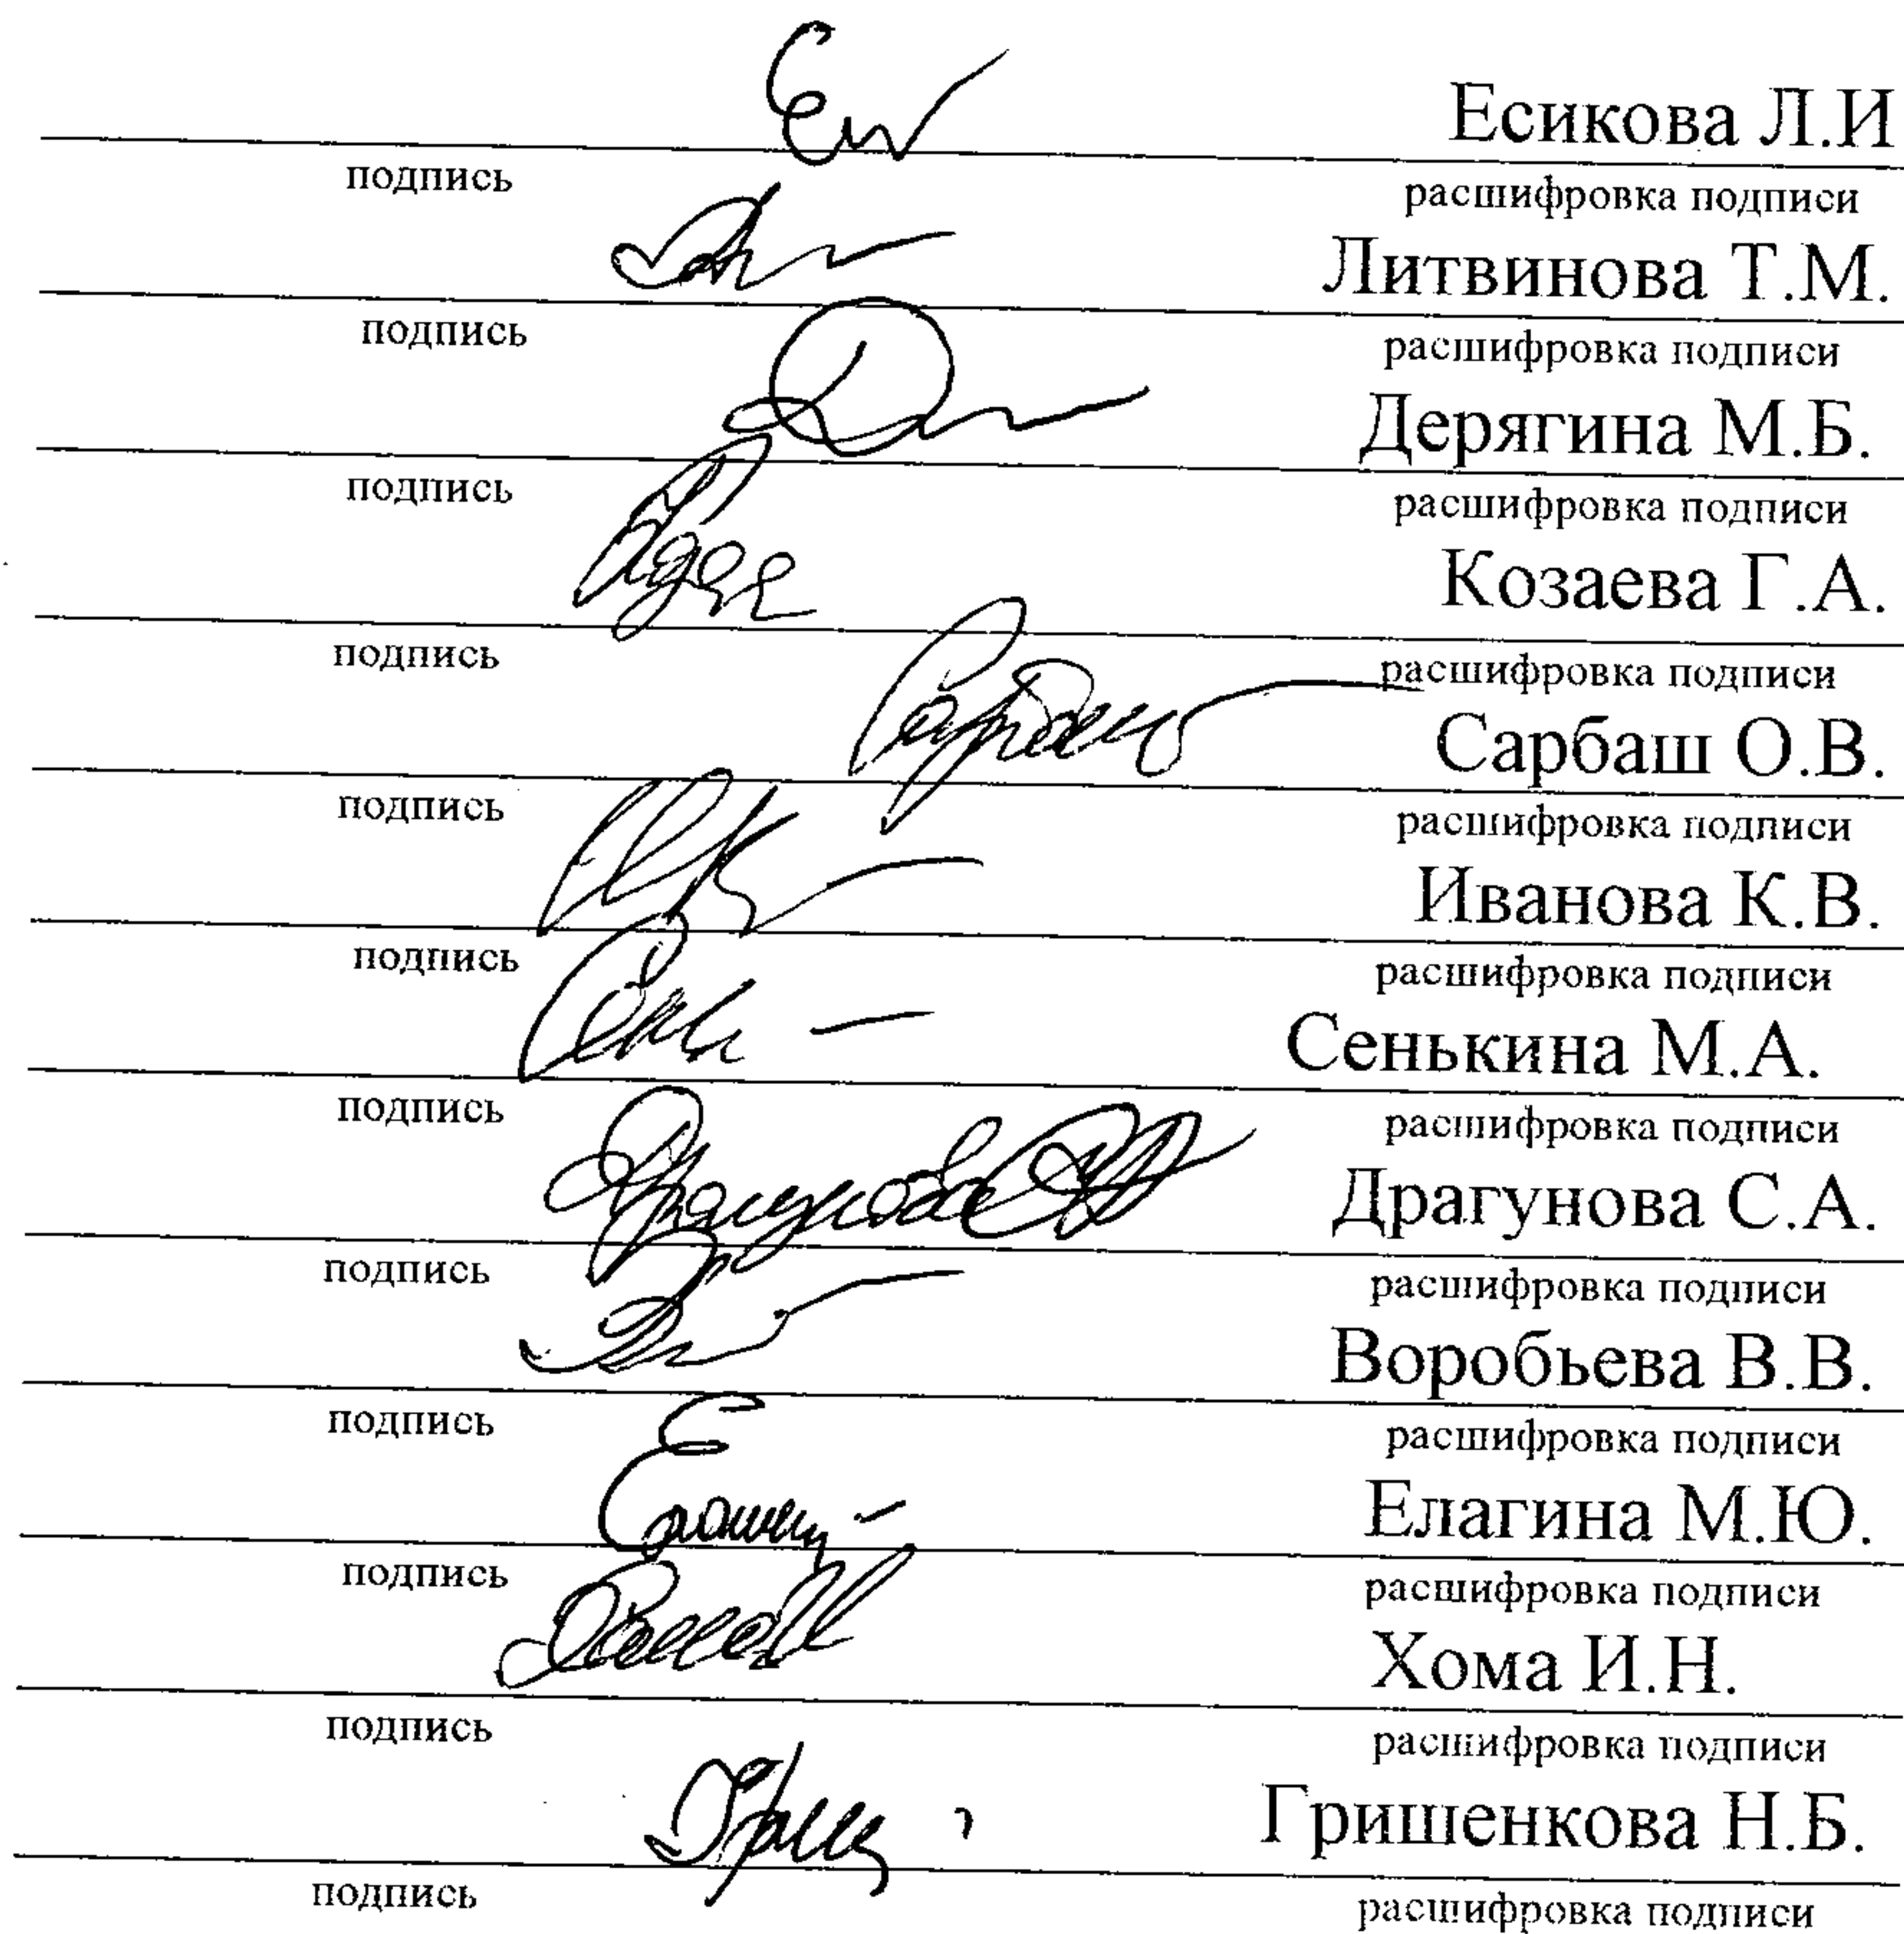 Есикова Л.И
подпись расшифровка подписи
Литвинова Т.М.
подпись расшифровка подписи
Дерягина М.Б.
подпись расшифровка подписи
Козаева Г.А.
подпись расшифровка подписи
Сарбаш О.В.
подпись расшифровка подписи
Иванова К.В.
подпись расшифровка подписи
Сенькина М.А.
подпись расшифровка подписи
Драгунова Драгунова С.А.
подпись расшифровка подписи
Воробьева В.В.
подпись расшифровка подписи
Елагина М.Ю.
подпись расшифровка подписи
Хома И.Н.
подпись расшифровка подписи
Гришенкова Н.Б.
подпись расшифровка подписи